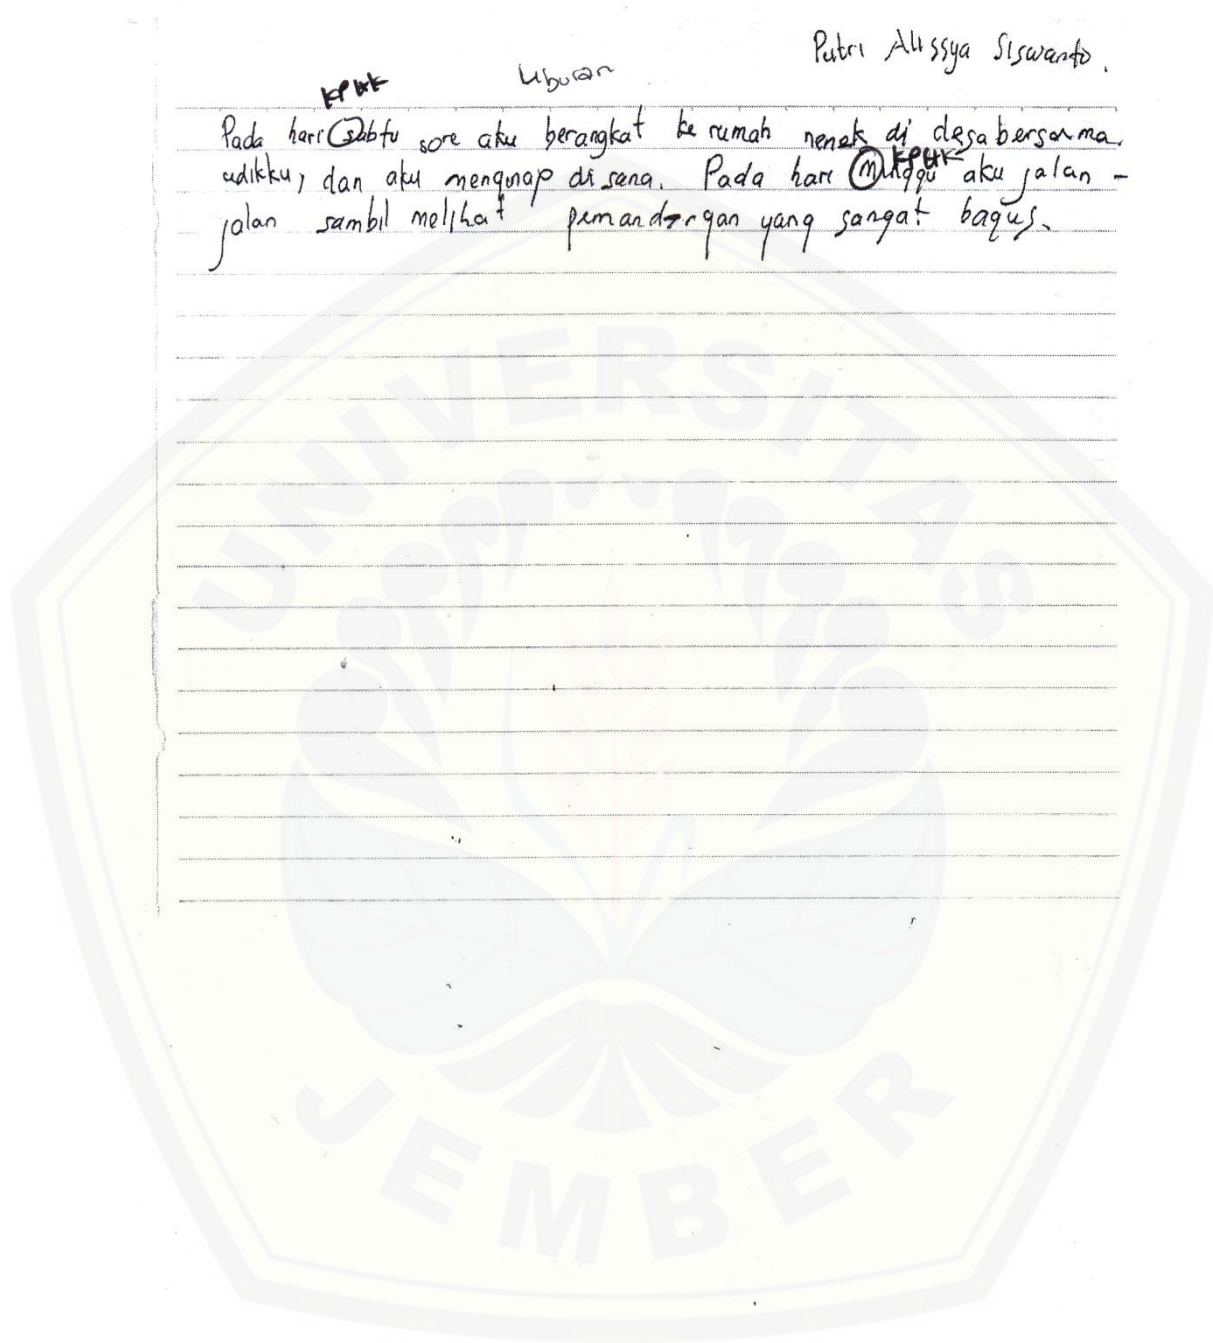 Putri Alissya Siswanto.
Liburan
Pada hari sabtu sore aku berangkat ke rumah nenek di desa bersama
adikku, dan aku menginap di sana. Pada hari minggu aku jalan -
jalan sambil melihat pemandangan yang sangat bagus.
UNIVERSITAS
JEMBER